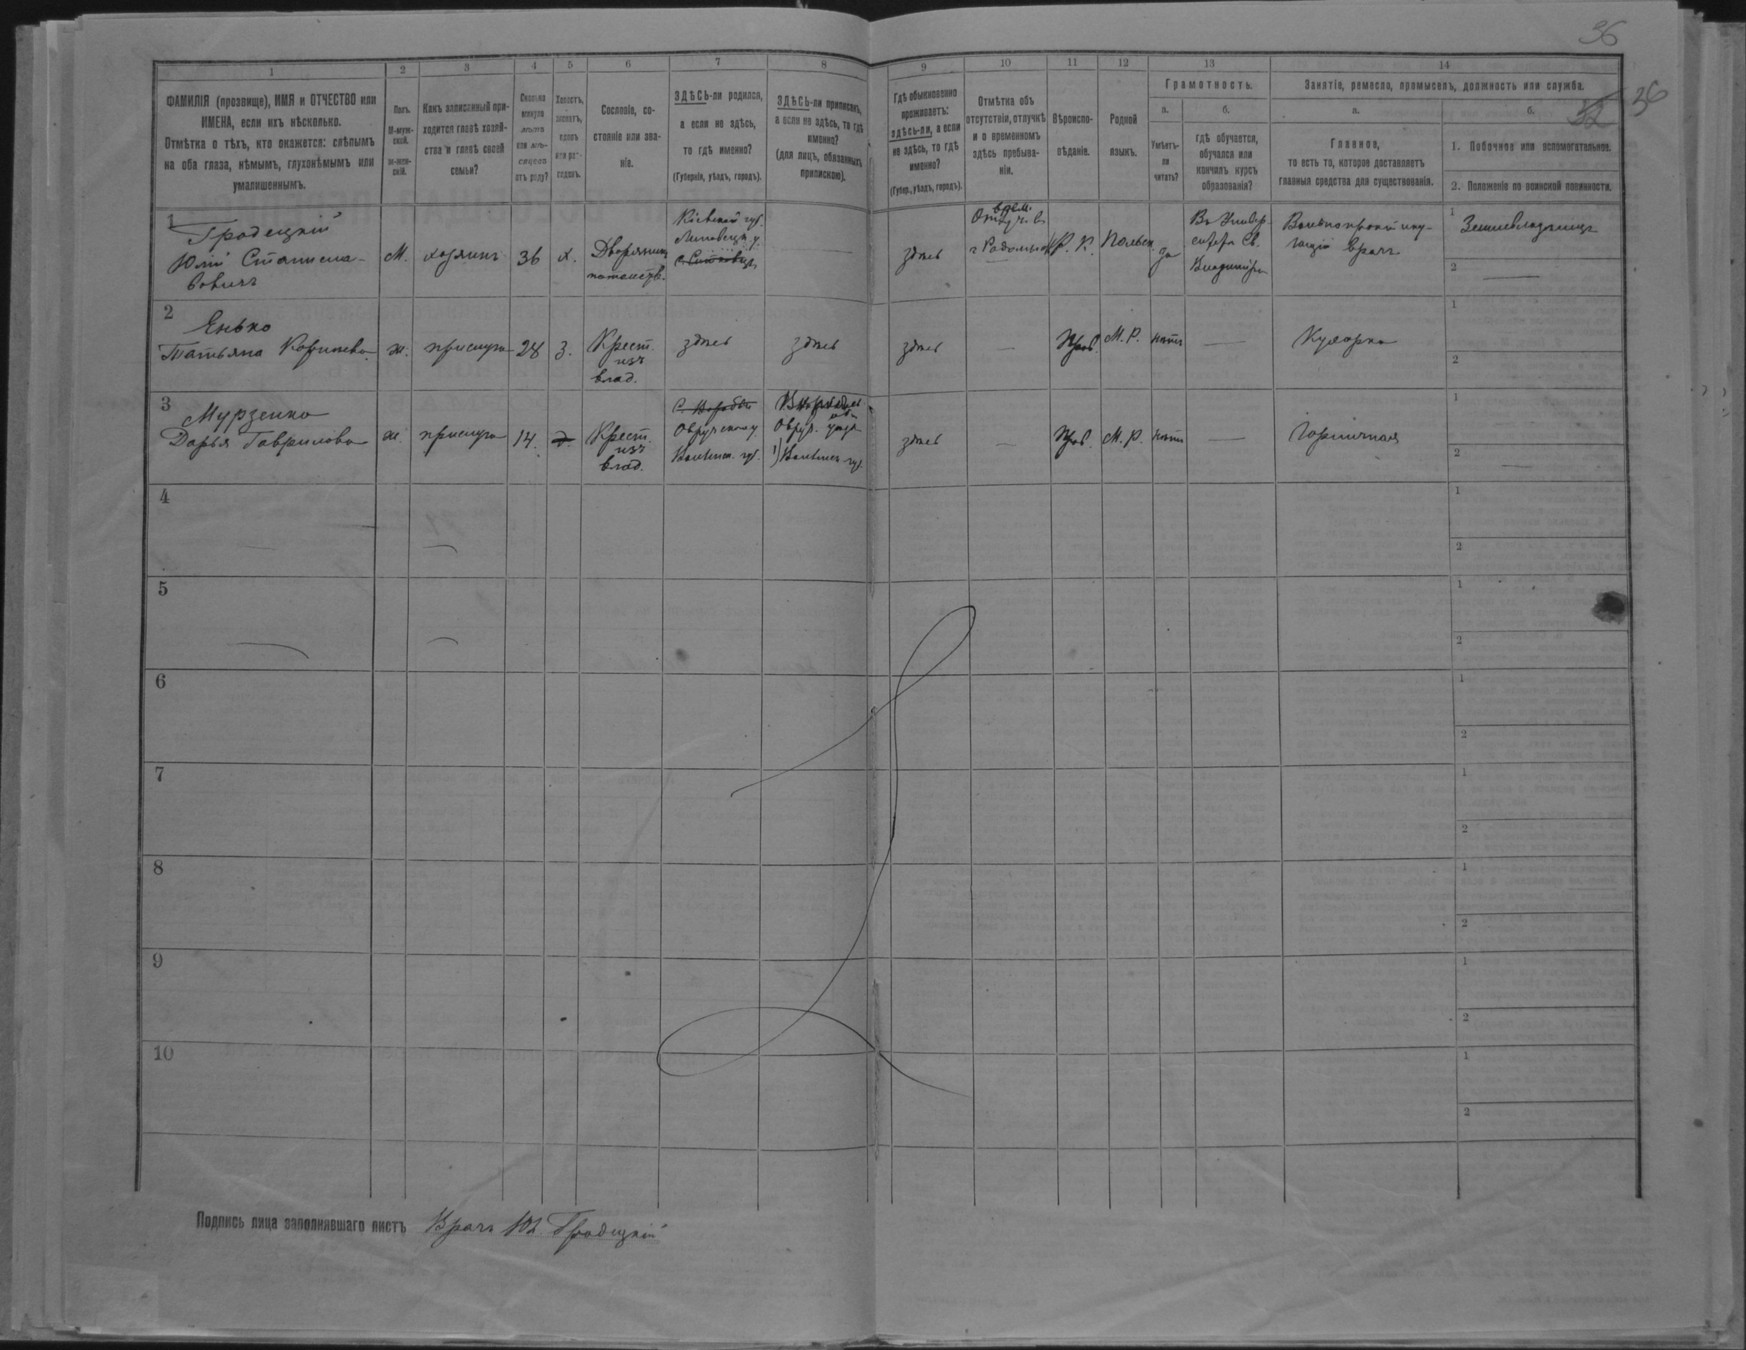 36
1 2 3 4 5 6 7 8 9 10 11 12 13 14
ФАМИЛІЯ (прозвище), ИМЯ и ОТЧЕСТВО или
ИМЕНА, если ихъ нѣсколько.
Отмѣтка о тѣхъ, кто окажется: слѣпымъ
на оба глаза, нѣмымъ, глухонѣмымъ или
умалишеннымъ.
Полъ.
М-муж-
ской.
Ж-жен-
скій.
Какъ записанный при-
ходится главѣ хозяй-
ства и главѣ своей
семьи?
Сколько
минуло
лѣтъ
или мѣ-
сяцевъ
отъ роду?
Холостъ,
женатъ,
вдовъ
или раз-
веденъ.
Сословіе, со-
стояніе или зва-
ніе.
ЗДѢСЬ-ли родился,
а если не здѣсь,
то гдѣ именно?
(Губернія, уѣздъ, городъ).
ЗДѢСЬ-ли приписанъ,
а если не здѣсь, то гдѣ
именно?
(для лицъ, обязанныхъ
припискою).
Гдѣ обыкновенно
проживаетъ:
здѣсь-ли, а если
не здѣсь, то гдѣ
именно?
(Губер., уѣздъ, городъ).
Отмѣтка объ
отсутствіи, отлучкѣ
и о временномъ
здѣсь пребыва-
ніи.
Вѣроиспо-
вѣданіе.
Родной
языкъ.
Грамотность.
а.
Умѣетъ-
ли
читать?
б.
гдѣ обучается,
обучался или
кончилъ курсъ
образованія?
Занятіе, ремесло, промыселъ, должность или служба.
а.
Главное,
то есть то, которое доставляетъ
главныя средства для существованія.
б.
32 36
1. Побочное или вспомогательное.
2. Положеніе по воинской повинности.
1
Гродецкій
Юлій Станисла-
вовичъ
М.
хозяинъ
36
х.
Дворянинъ
потомств.
Кіевской губ.
Липовецк. у.
—
здѣсь
врем.
Отлуч. въ
г. Радомысль
Р. К.
Польск.
да
Въ Универ
ситетѣ Св.
Владиміра
Вольнопракти-
кующій врачъ
1 Землевладѣлецъ
2 —
2
Енько
Татьяна Корнѣева
ж.
прислуга
28
з.
Крест.
изъ
влад.
здѣсь
здѣсь
здѣсь
—
Прав.
М. Р.
нѣтъ
—
Кухарка
1
2
3
Мурзенко
Дарья Гаврилова
ж.
прислуга
14
Крест.
изъ
влад.
Овручскаго у.
Волынск. губ.
Овруч. уѣзд.
Волынск. губ.
здѣсь
—
Прав.
М. Р.
нѣтъ
—
Горничная
1
2 —
4
1
2
5
1
2
6
1
2
7
1
2
8
1
2
9
1
2
10
1
2
Подпись лица заполнявшаго листъ Врачъ Юл. Гродецкій